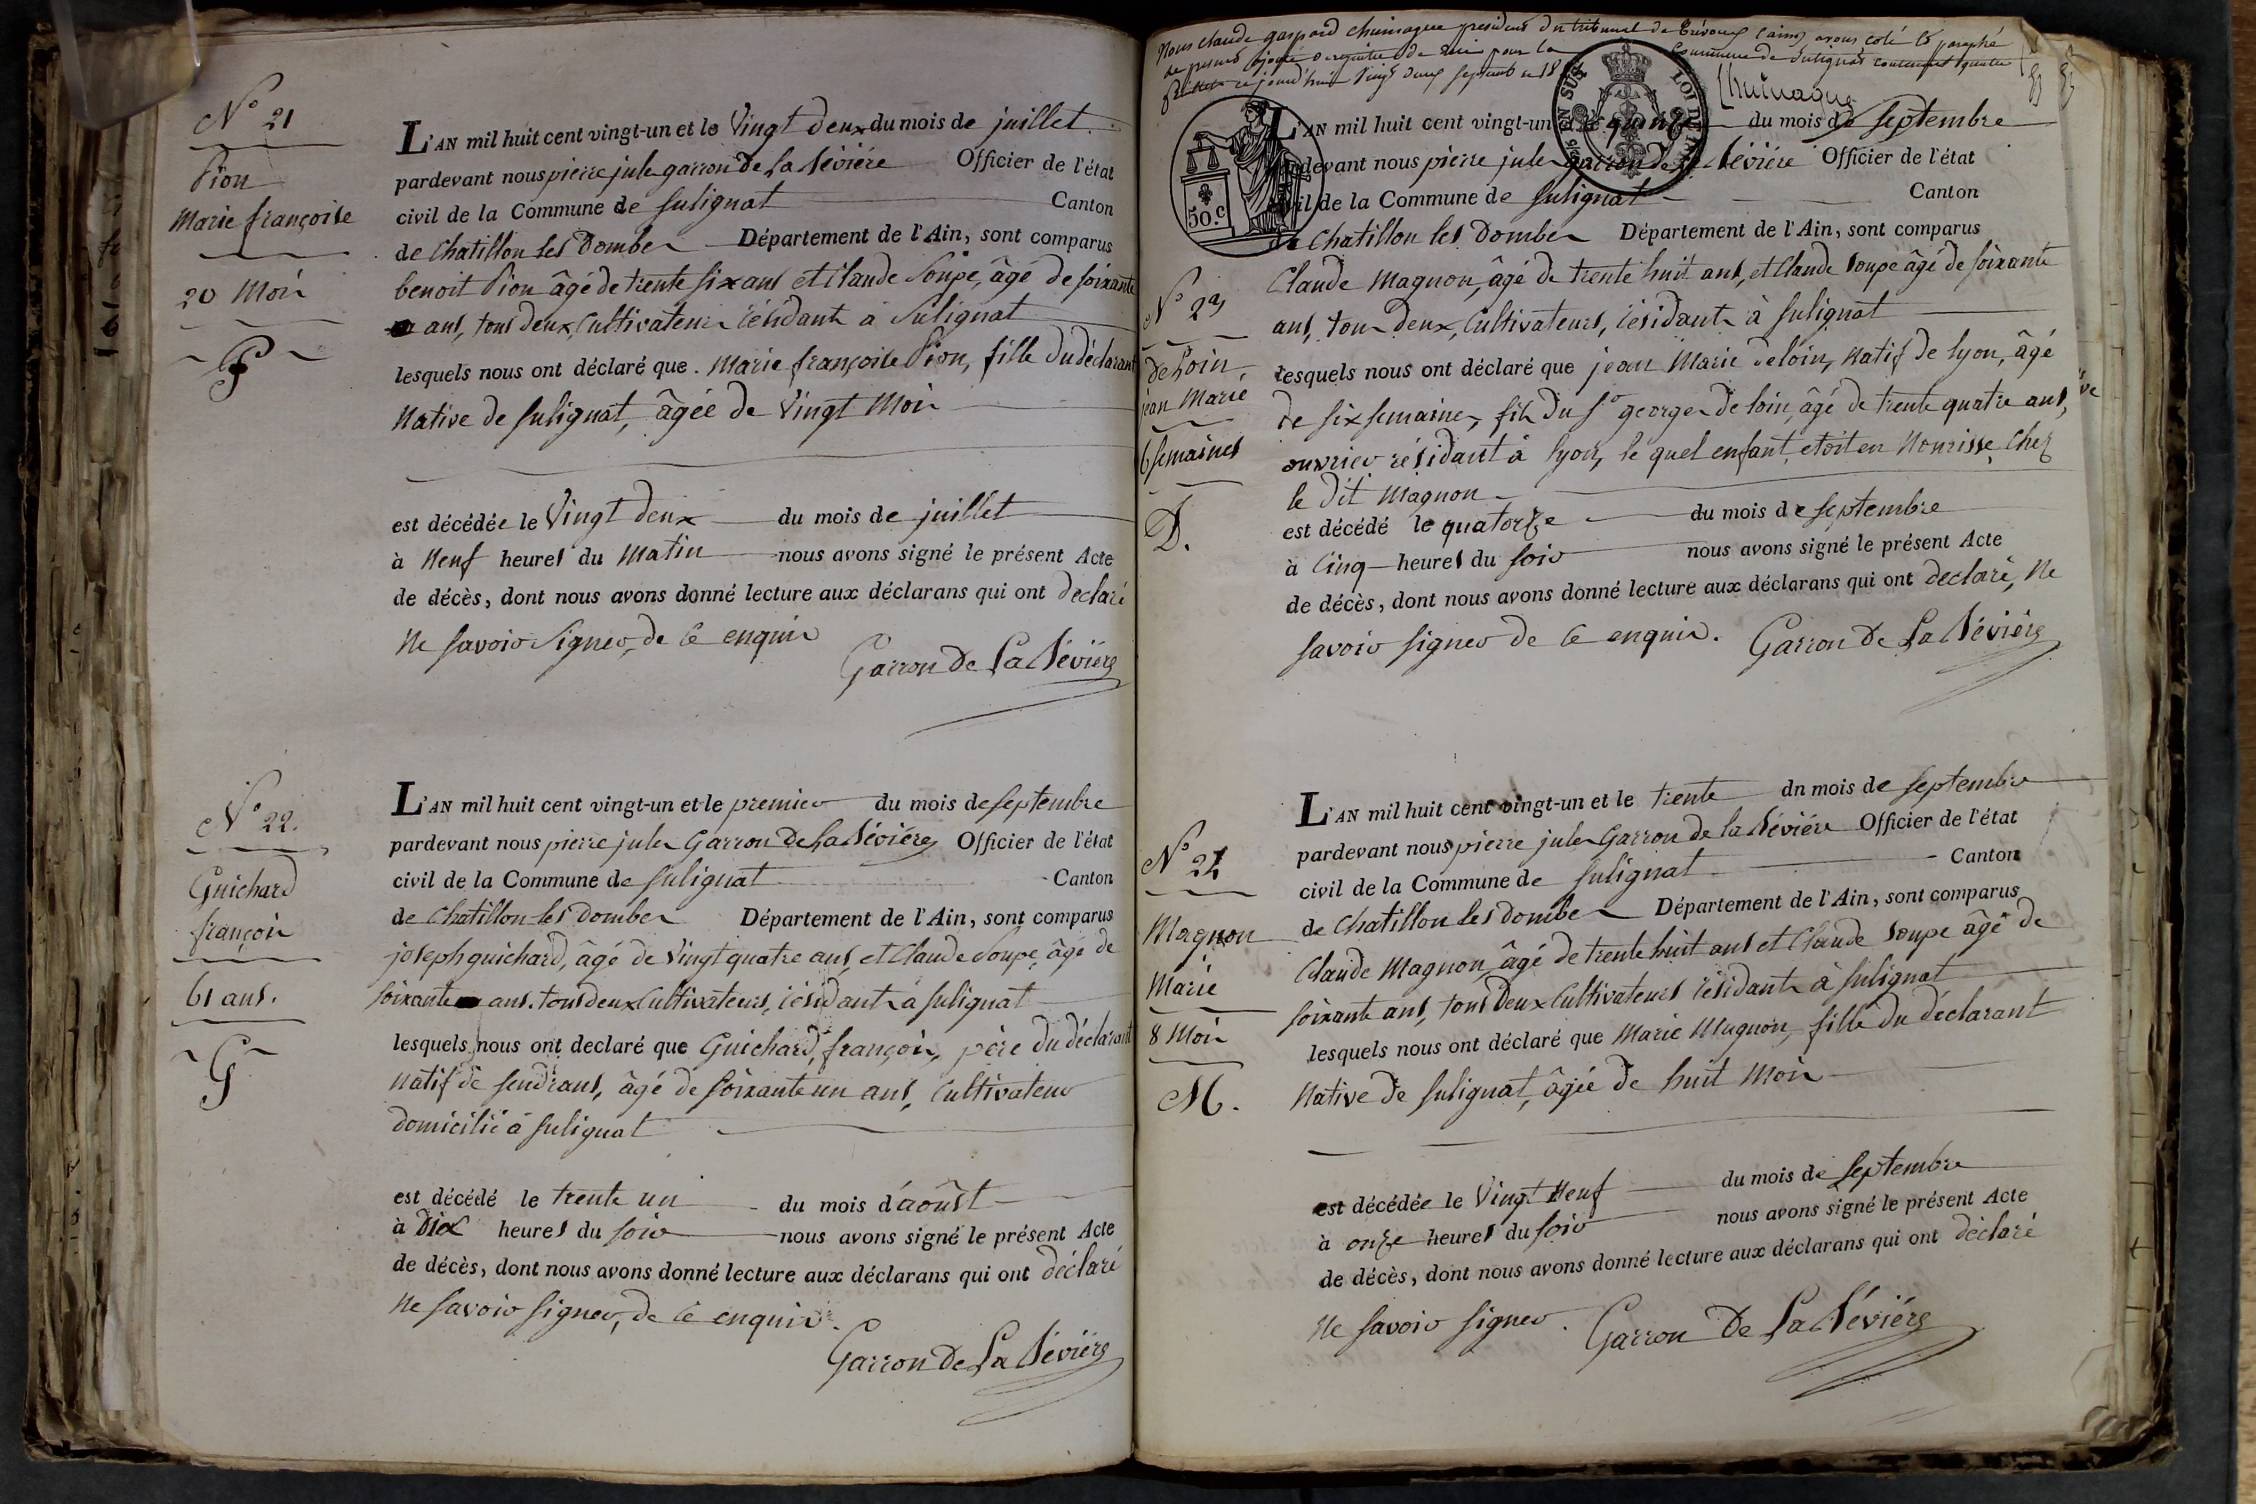 N° 21
Pion
Marie françoise
20 Mois
P
L'AN mil huit cent vingt-un et le Vingt deux du mois de juillet
pardevant nous pierre jule garron De La Séviére Officier de l'état
civil de la Commune de Sulignat Canton
de Chatillon les Dombes Département de l'Ain, sont comparus
benoit Pion âgé de trente six ans et Claude Soupe, âgé de soixante
ans, tous deux Cultivateurs résidants à Sulignat
lesquels nous ont déclaré que Marie françoise Pion, fille du déclarant
Native de Sulignat, âgée de Vingt Mois
est décédée le Vingt deux du mois de juillet
à Neuf heures du Matin nous avons signé le présent Acte
de décès, dont nous avons donné lecture aux déclarans qui ont déclaré
Ne savoir signer, de ce enquis
Garron De La Séviére
N° 22.
Guichard
françois
61 ans.
G
L'AN mil huit cent vingt-un et le premier du mois de septembre
pardevant nous pierre jules Garron De La Séviére Officier de l'état
civil de la Commune de Sulignat Canton
de Chatillon les Dombes Département de l'Ain, sont comparus
joseph guichard, âgé de Vingt quatre ans, et Claude Soupe, âgé de
soixante ans. tous deux Cultivateurs, résidants à Sulignat
lesquels nous ont declaré que Guichard, françois, père du déclarant
Natif de Sendrans, âgé de soixante un ans, Cultivateur
domicilié à Sulignat
est décédé le trente un du mois d'août
à Dix heures du soir nous avons signé le présent Acte
de décès, dont nous avons donné lecture aux déclarans qui ont déclaré
Ne savoir signer, de ce enquis.
Garron De La Séviére
Nous Claude gaspard president du tribunal de Trévoux (ain) avons coté & paraphé
de pour la Commune de Sulignat contenant
ce jourd'huy Vingt deux septembre 18
EN SUS
LOI DE
50.c
L'AN mil huit cent vingt-un et le quinze du mois de Septembre
pardevant nous pierre jules garron de la Séviére Officier de l'état
civil de la Commune de Sulignat Canton
de Chatillon les Dombes Département de l'Ain, sont comparus
N° 23
de Loin
jean Marie
6 semaines
D.
Claude Magnon, âgé de trente huit ans, et Claude Soupe âgé de soixante
ans, tous deux, Cultivateurs, résidants à Sulignat
lesquels nous ont déclaré que jean Marie deloin, Natif de lyon, âgé
de six semaines, fils du Sr george de loin, âgé de trente quatre ans,
ouvrier résidant à lyon, le quel enfant, etoit en Nourisse, Chez
le Dit Magnon
est décédé le quatorze du mois de septembre
à Cinq heures du soir nous avons signé le présent Acte
de décès, dont nous avons donné lecture aux déclarans qui ont declaré, Ne
savoir signer de ce enquis. Garron De La Séviére
N° 24
Magnon
Marie
8 Mois
M.
L'AN mil huit cent vingt-un et le trente dn mois de septembre
pardevant nous pierre jules Garron de la Séviére Officier de l'état
civil de la Commune de Sulignat Canton
de Chatillon les Dombes Département de l'Ain, sont comparus
Claude Magnon, âgé de trente huit ans et Claude Soupe âgé de
soixante ans, tous Deux Cultivateurs résidants à Sulignat
lesquels nous ont déclaré que Marie Magnon, fille du déclarant
Native de Sulignat, âgée de huit Mois
est décédée le Vingt Neuf du mois de Septembre
à onze heures du soir nous avons signé le présent Acte
de décès, dont nous avons donné lecture aux déclarans qui ont déclaré
Ne savoir signer. Garron De La Séviére